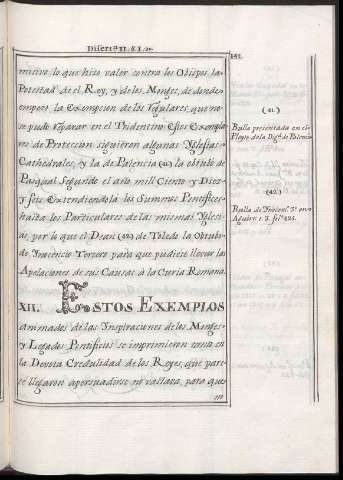 Disertⁿ. II. § I.
142.
misivo lo que hizo valer contra los Obispos la
Potestad de el Rey, y de los Monges, de donde
empezó la Exempcion de los Regulares, que no
se pudo reparar en el Tridentino. Estos Exempla
res de Proteccion siguieron algunas Yglesias
Cathedrales, y la de Palencia (41) la obtubo de
Pasqual Segundo el año mill Ciento y Diez
y seis. Extendiendola los Summos Pontifices
hasta los Particulares de las mismas Ygle
sias, por lo que el Dean (42) de Toledo la Obtubo
de Inocencio Tercero para que pudiese llevar las
Apelaciones de sus Causas à la Curia Romana.
XII. ESTOS EXEMPLOS
animados de las Inspiraciones de los Monges
y Legados Pontificios se imprimieron tanto en
la Devota Credulidad de los Reyes, que pare
se llegaron a persuadirse no vastava, para que
(41.)
Bulla presentada en el
Pleyto de la Digᵈ. de Palencia
(42.)
Bulla de Inocenᵒ. 3º. en
Aguirre t. 3. folº 428.